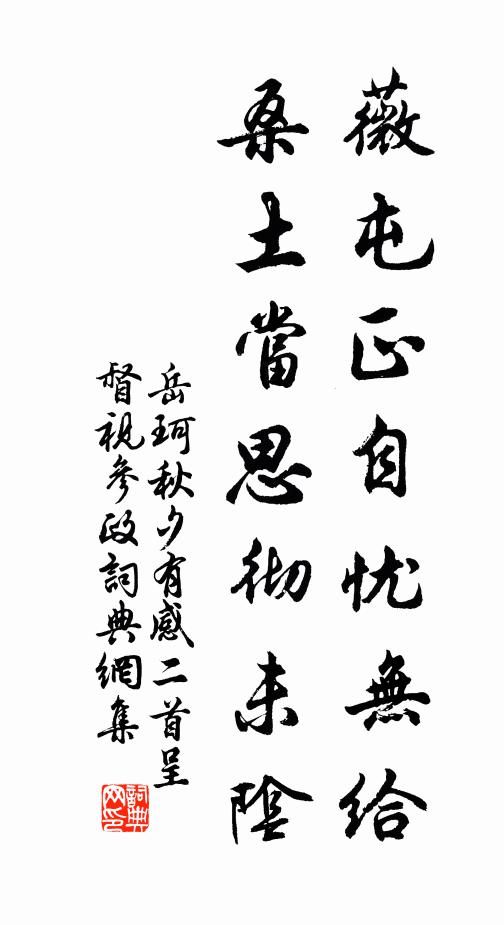 薇屯正自忧無給
桑土當思彻未陰
岳珂秋夕有感二首呈
督視參政詞典網集
詞典网印